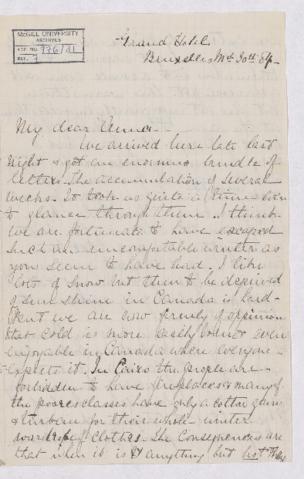 McGILL UNIVERSITY
ARCHIVES
ACC. NO.
REF.
Grand Hotel
Bruxelles
My dear
we arrived here late last
night & got an enormous bundle of
letters. The accumulation of several
weeks. It took us quite a time even
to glance through them. I think
we are fortunate to have escaped
such an uncomfortable winter as
you seem to have had. I like
lots of snow but then to be deprived
of sunshine in Canada is hard.
But we are now firmly of opinion
that cold is more easily borne & even
enjoyable in Canada where everyone
expects it. In Cairo the people are
forbidden to have fireplaces & many of
the poorer classes have only a cotton gown
& turban for their whole winter
wardrobe of clothes. The consequences are
that when it is anything but hot they